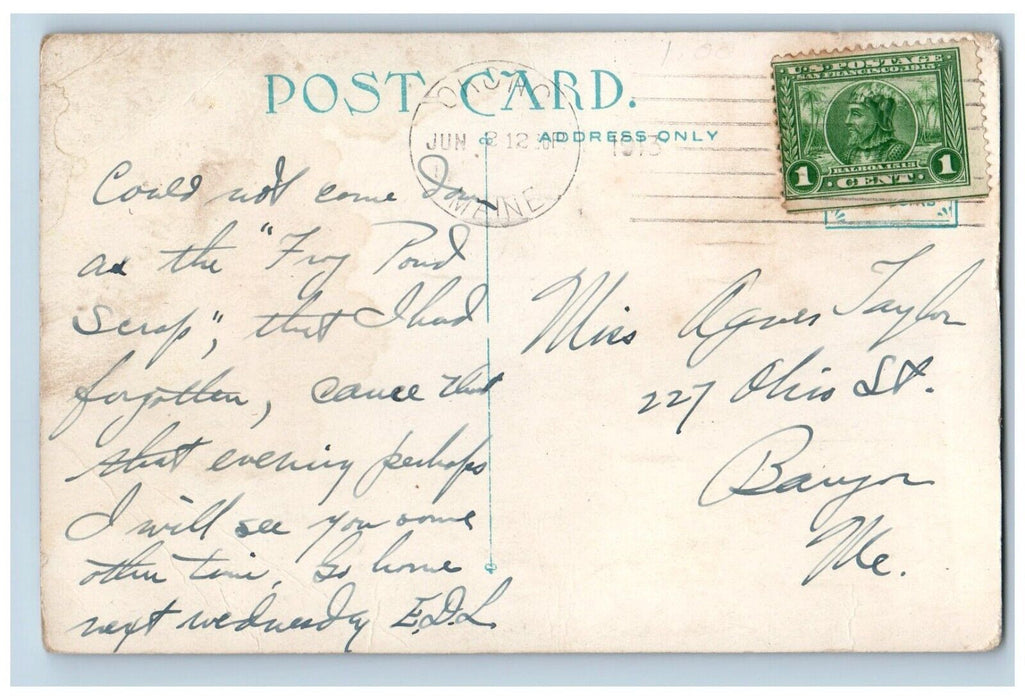 POST CARD.
ADDRESS ONLY
ORONO
JUN 2 12 30P 1913
MAINE
U.S. POSTAGE
SAN FRANCISCO, 1915
BALBOA 1513
1 CENT 1
Could not come down
as the "Frog Pond
Scrap", that I had
forgotten, came that
that evening perhaps
I will see you some
other time. Go home
next wednesday E.D.L.
Miss Agnes Taylor
227 Ohio St.
Bangor
Me.